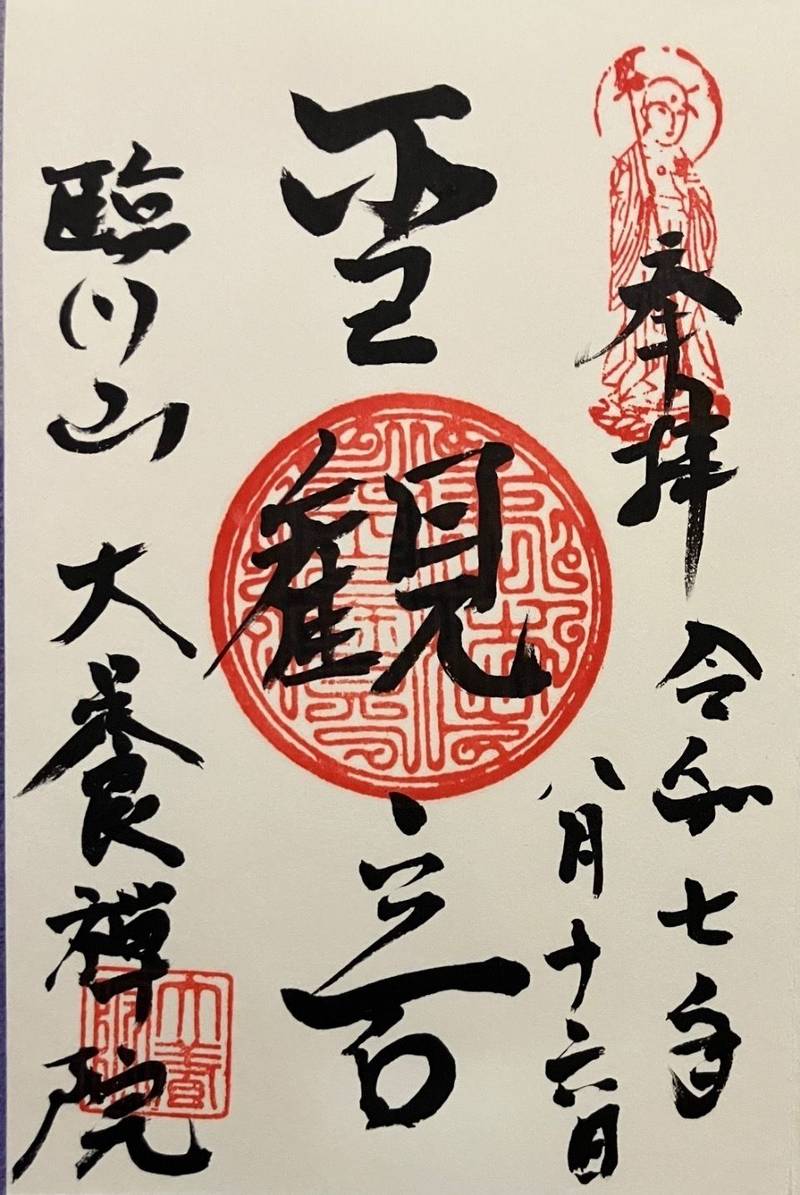 奉拝 令和七年
八月十六日
聖観音
臨川山 大養禅院